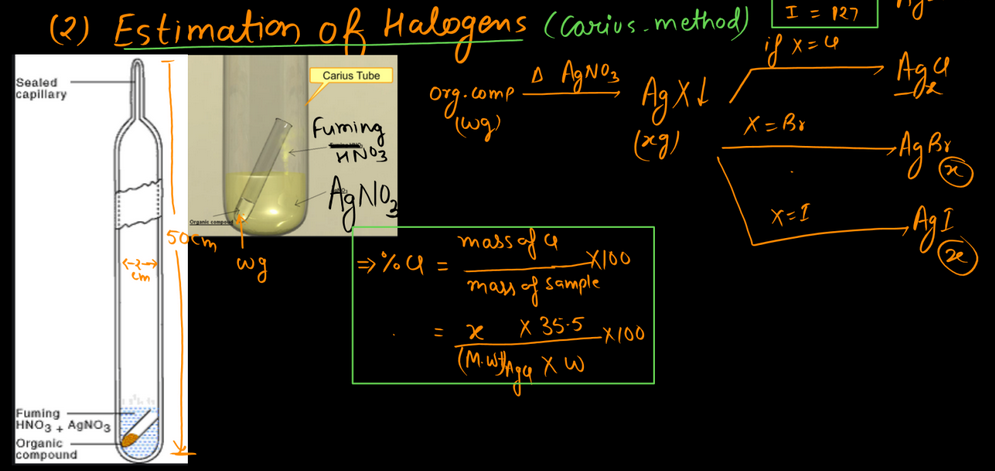 (2) Estimation of Halogens (Carius-method)
I = 127
Ag
Sealed
capillary
Carius Tube
Fuming
HNO3
AgNO3
Organic compound
wg
50cm
←2→
cm
Fuming
HNO3 + AgNO3
Organic
compound
Org. comp
(wg)
Δ AgNO3
AgX↓
(xg)
if X = Cl
AgCl
x
X = Br
AgBr
x
X = I
AgI
x
⇒ % Cl = mass of Cl / mass of sample X100
= x X 35.5 / (M.wt)AgCl X W X100